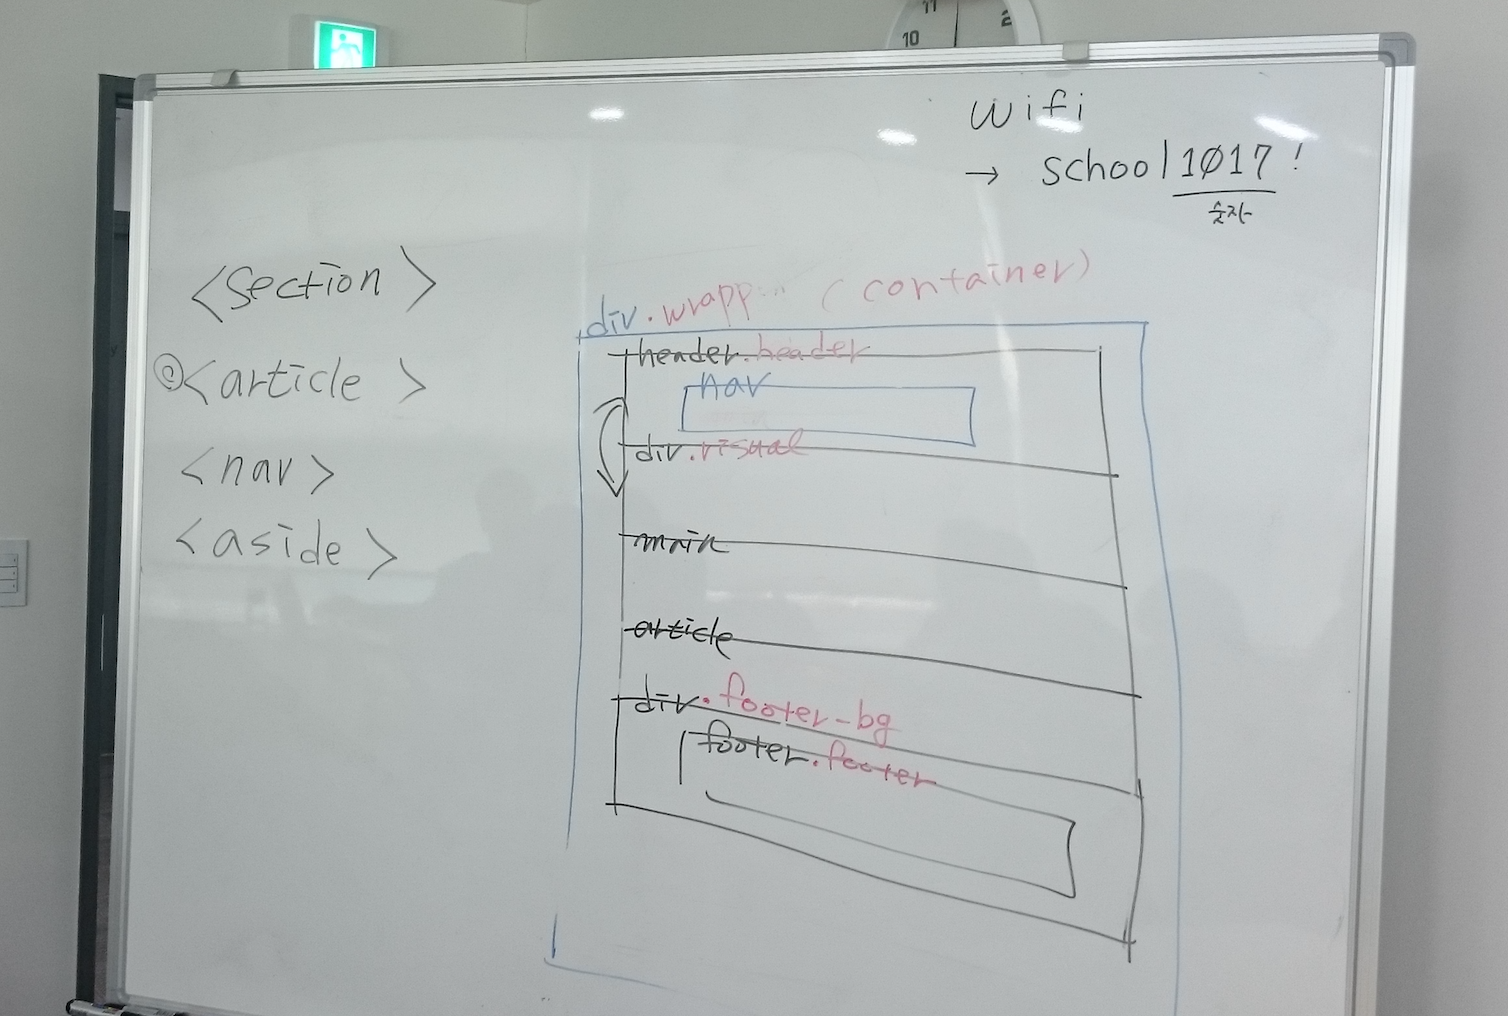 11
10
2
wifi
→ school1017!
숫자
<section>
<article>
<nav>
<aside>
div.wrapp (container)
header.header
nav
div.visual
main
article
div.footer-bg
footer.footer